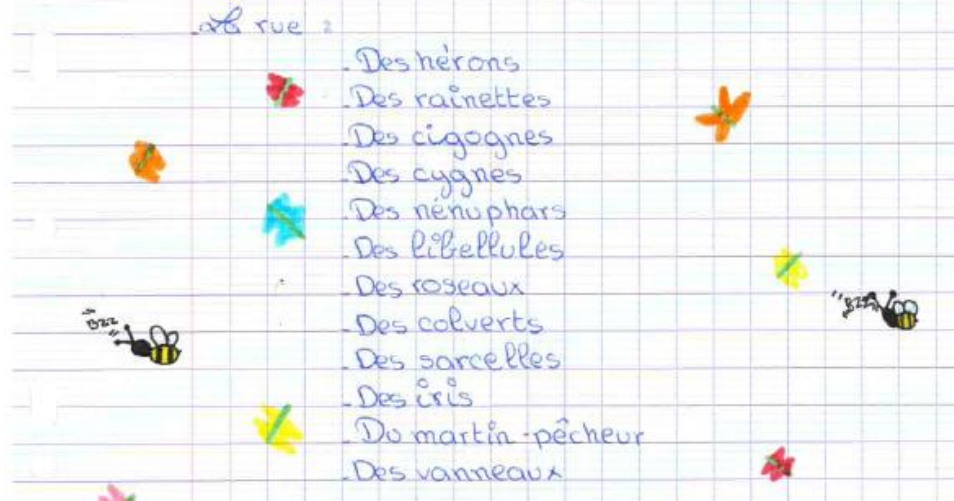 La rue :
- Des hérons
- Des rainettes
- Des cigognes
- Des cygnes
- Des nénuphars
- Des libellules
- Des roseaux
- Des colverts
- Des sarcelles
- Des iris
- Du martin-pêcheur
- Des vanneaux
Bzz
"Bzzz